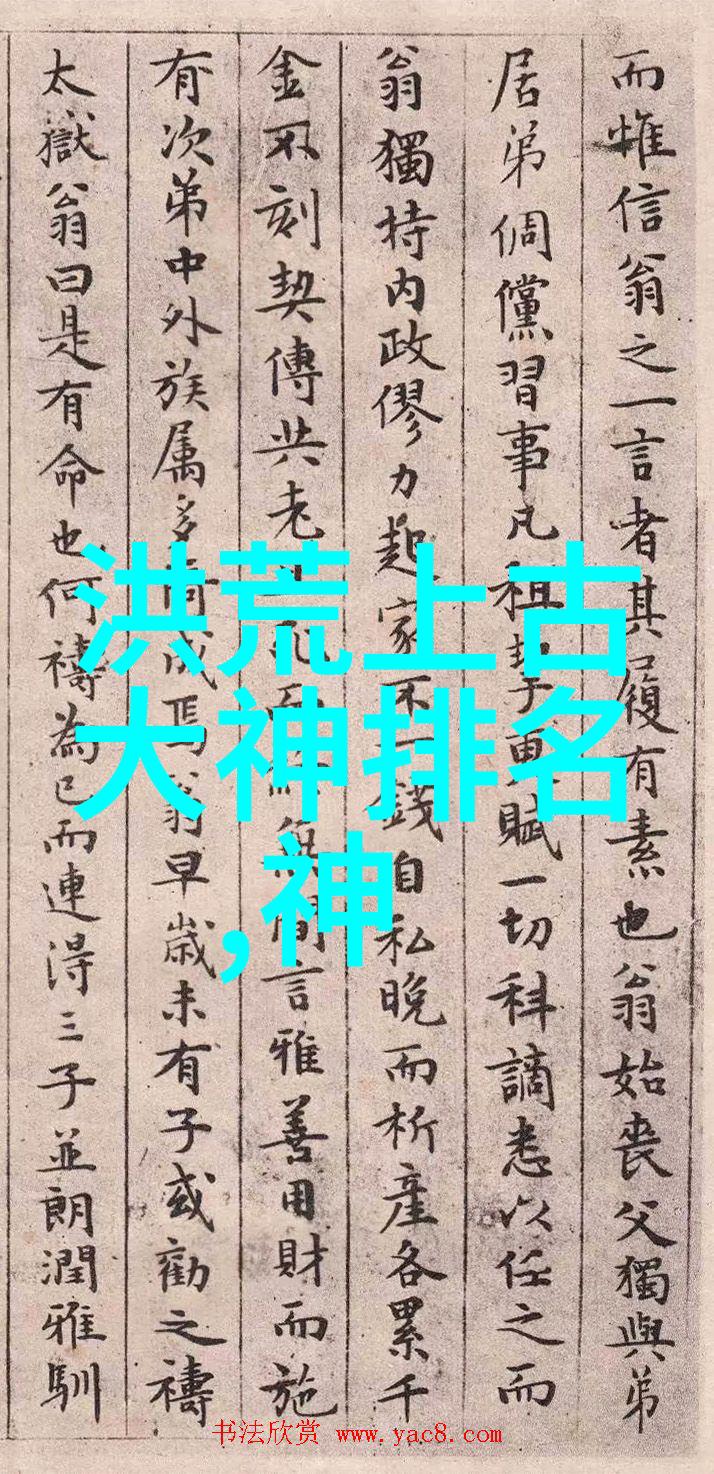 而惟信翁之一言者其履有素也翁始喪父獨與弟
居弟倜儻習事凡租更賦一切科讁悉以任之而
翁獨持内政僇力起家不一錢自私晚而析産各累千
金不刻契傳共老死而無間言雅善用財而施
有次第中外族属多成焉翁早歲未有子或勸之禱
太獄翁曰是有命也何禱為已而連得三子並朗潤雅馴
洪荒上古
大神排名
,神
书法欣赏 www.yac8.com